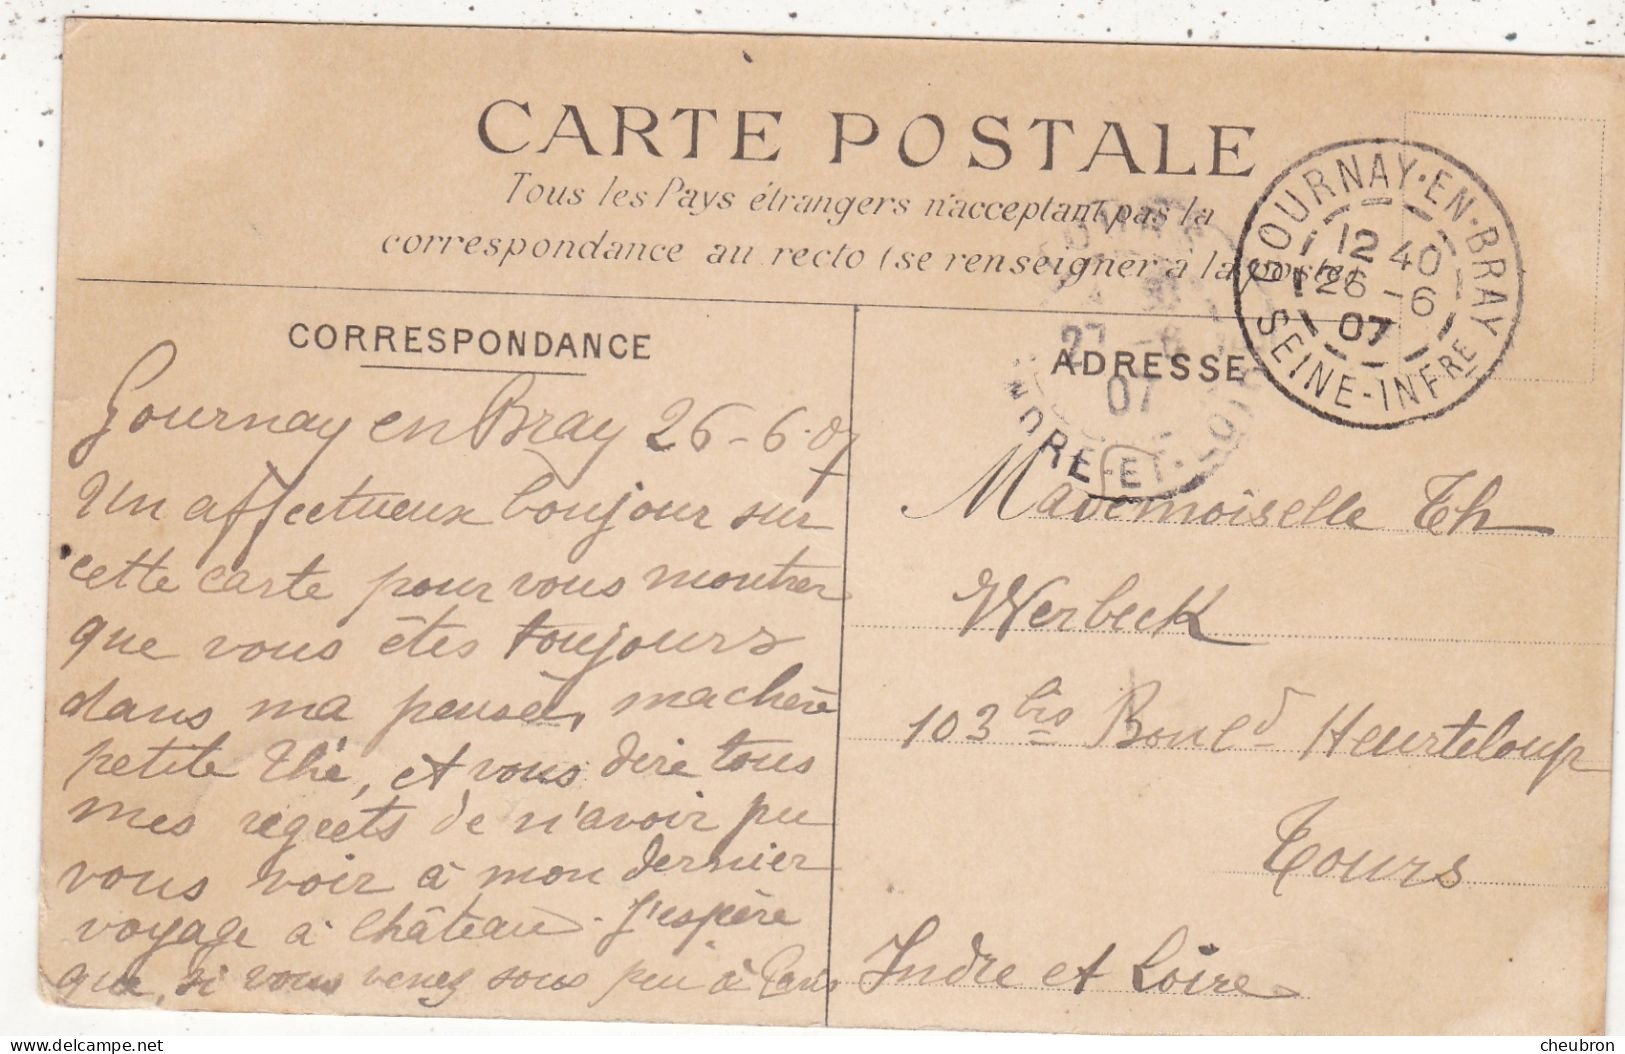 CARTE POSTALE
Tous les Pays étrangers n'acceptant pas la
correspondance au recto (se renseigner à la poste)
CORRESPONDANCE
Gournay en Bray 26-6-07
Un affectueux bonjour sur
cette carte pour vous montrer
que vous êtes toujours
dans ma pensée, ma chère
petite Thé, et vous dire tous
mes regrets de n'avoir pu
vous voir à mon dernier
voyage à Château. J'espère
que, si vous venez sous peu à Paris
ADRESSE
Mademoiselle Th
Werbeck
103 bis Boul d Heurteloup
Tours
Indre et Loire
GOURNAY-EN-BRAY
12 40
26 -6
07
SEINE-INFRE
27 -6
07
INDRE-ET-LOIRE
delcampe.net
cheubron